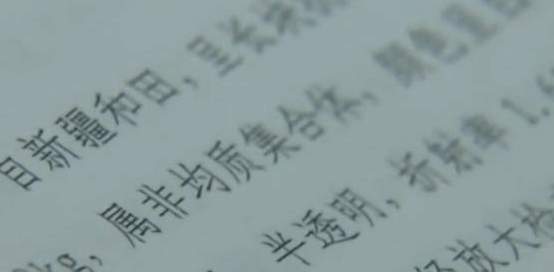 目新疆和田，呈长
kg，属非均质集合体，颜色呈
半透明，折射率1.6
放大检